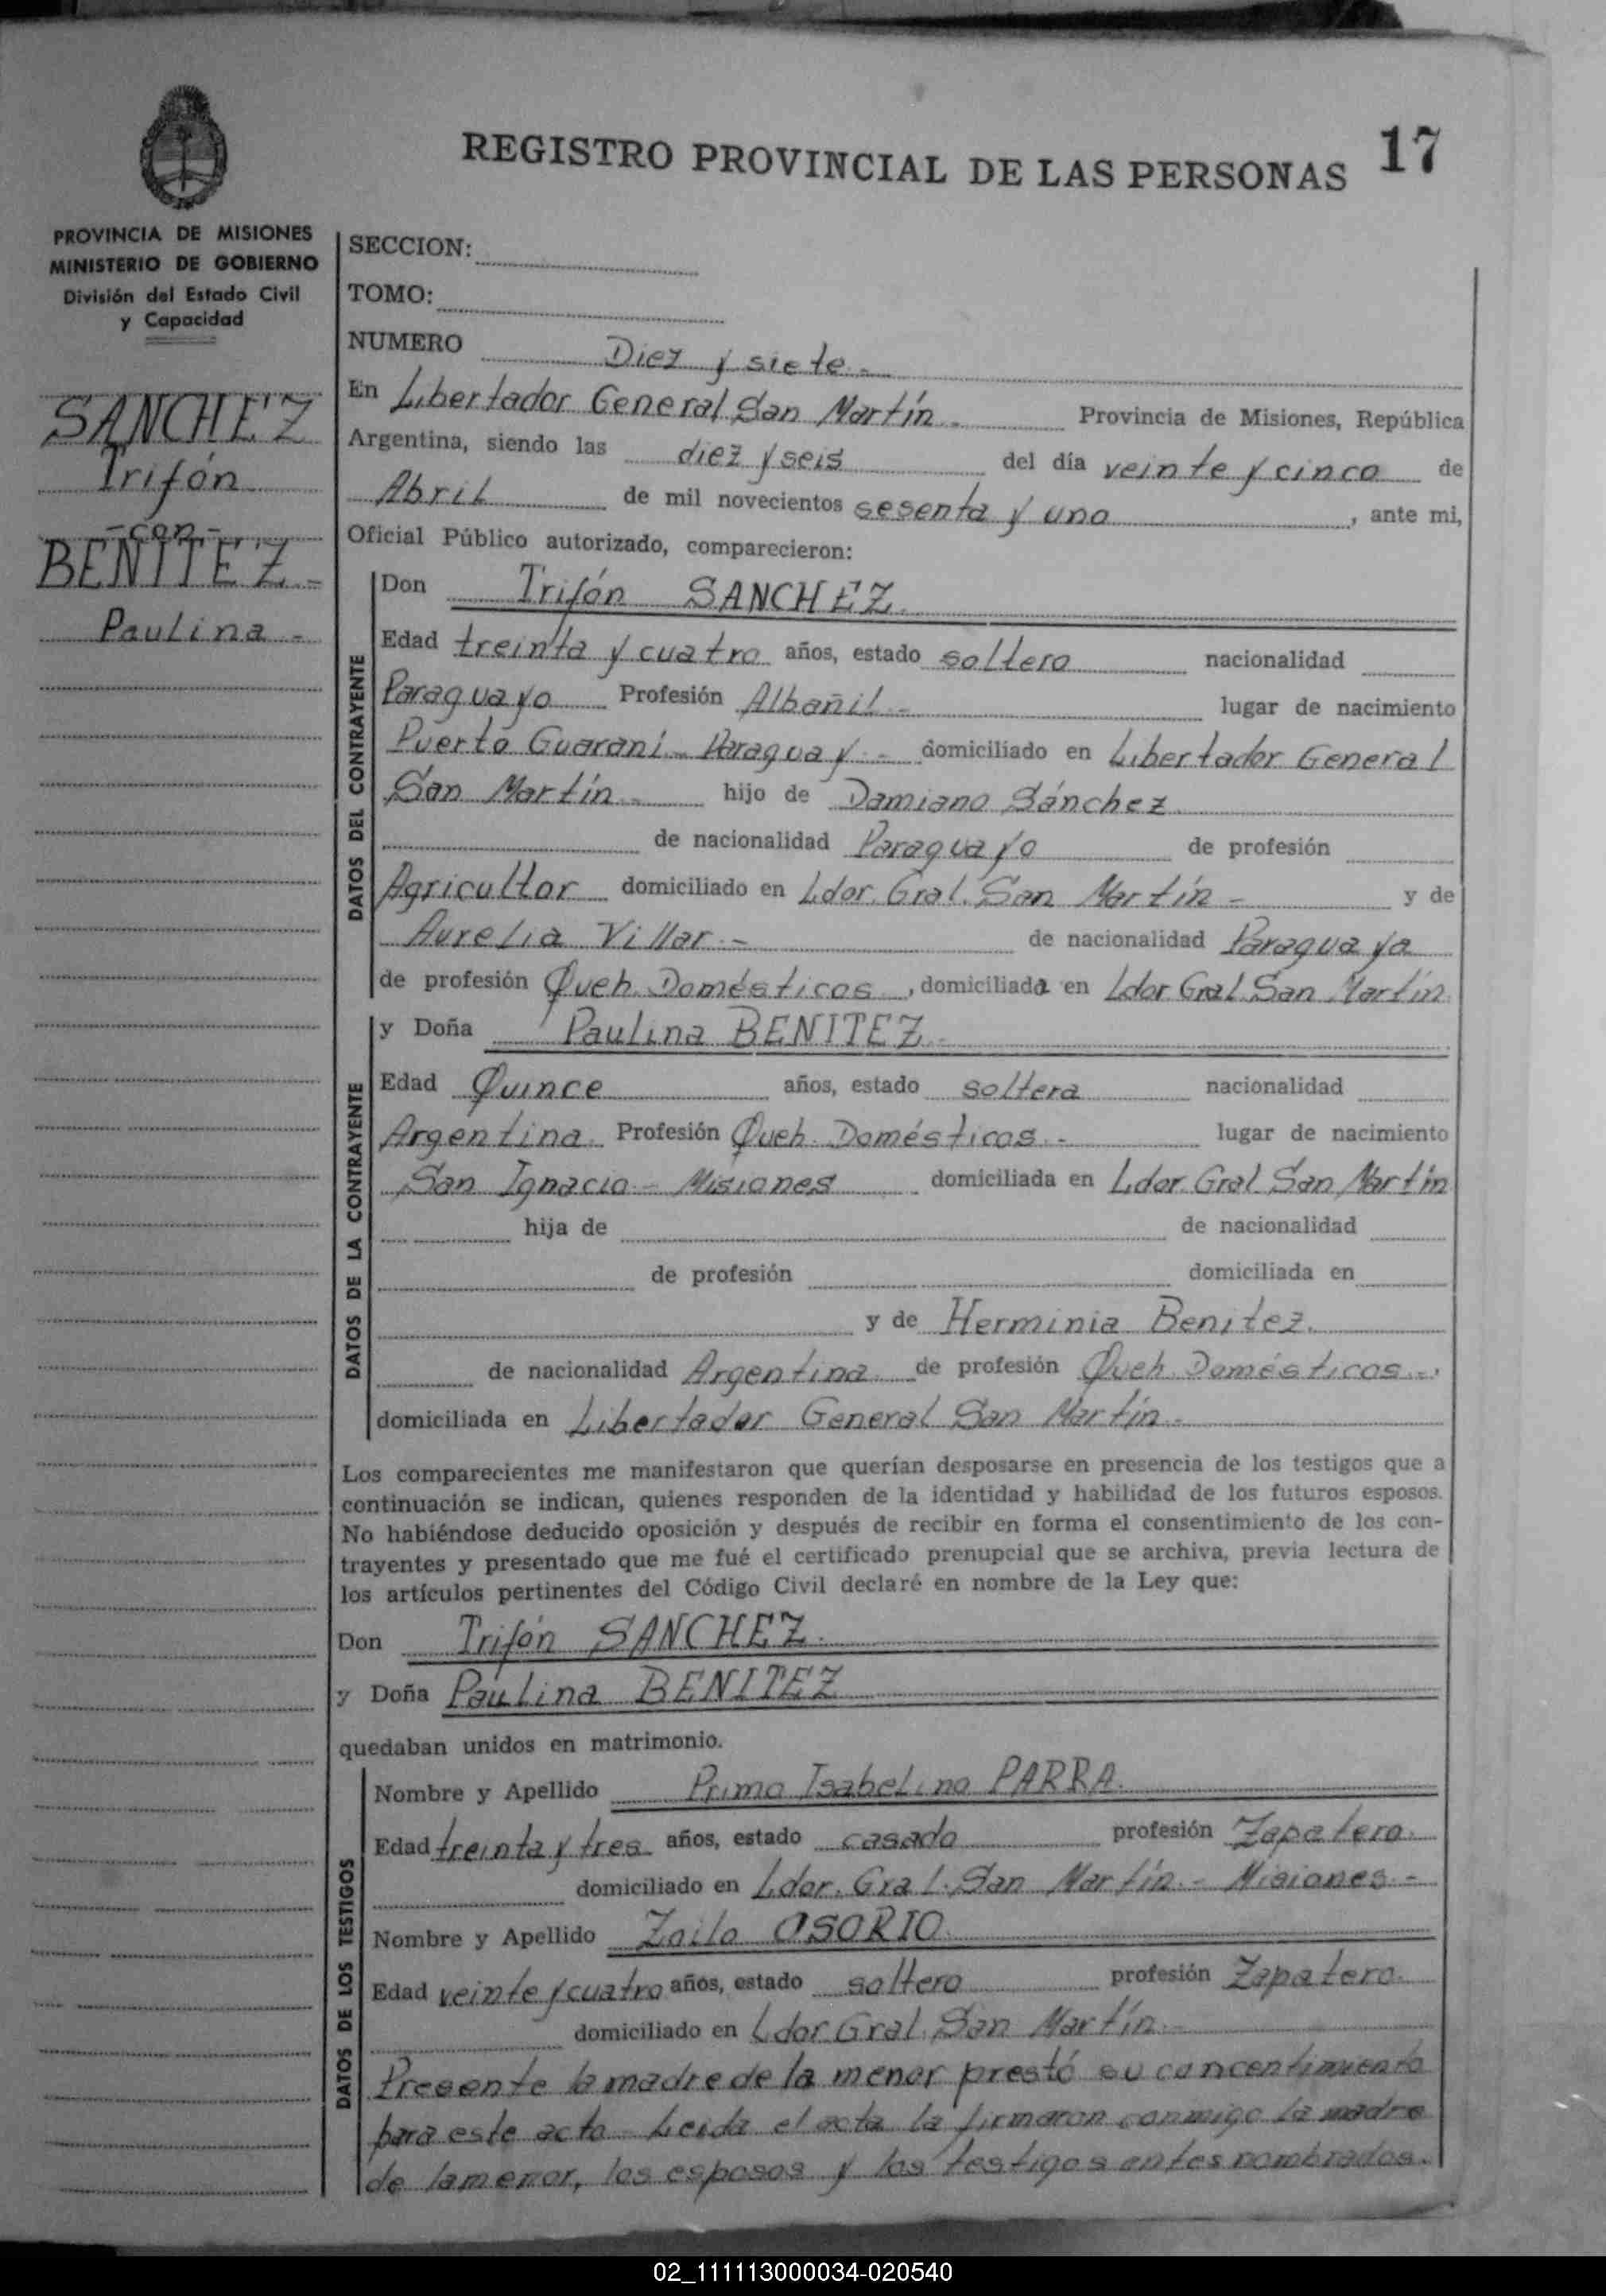 REGISTRO PROVINCIAL DE LAS PERSONAS 17
PROVINCIA DE MISIONES
MINISTERIO DE GOBIERNO
División del Estado Civil
y Capacidad
SANCHEZ
Trifón
-con-
BENITEZ-
Paulina-
SECCION:
TOMO:
NUMERO Diez y siete.-
En Libertador General San Martín.- Provincia de Misiones, República
Argentina, siendo las diez y seis del día veinte y cinco de
Abril de mil novecientos sesenta y uno, ante mi,
Oficial Público autorizado, comparecieron:
DATOS DEL CONTRAYENTE
Don Trifón SANCHEZ.
Edad treinta y cuatro años, estado soltero nacionalidad
Paraguayo Profesión Albañil.- lugar de nacimiento
Puerto Guaraní-Paraguay.- domiciliado en Libertador General
San Martín.- hijo de Damiano Sánchez
de nacionalidad Paraguayo de profesión
Agricultor domiciliado en Ldor. Gral. San Martín- y de
Aurelia Villar.- de nacionalidad Paraguaya
de profesión Queh. Domésticos, domiciliada en Ldor Gral San Martín
DATOS DE LA CONTRAYENTE
y Doña Paulina BENITEZ.
Edad Quince años, estado soltera nacionalidad
Argentina. Profesión Queh. Domésticos.- lugar de nacimiento
San Ignacio- Misiones domiciliada en Ldor. Gral San Martín
hija de de nacionalidad
de profesión domiciliada en
y de Herminia Benitez.
de nacionalidad Argentina. de profesión Queh. Domésticos.-,
domiciliada en Libertador General San Martín.-
Los comparecientes me manifestaron que querían desposarse en presencia de los testigos que a
continuación se indican, quienes responden de la identidad y habilidad de los futuros esposos.
No habiéndose deducido oposición y después de recibir en forma el consentimiento de los con-
trayentes y presentado que me fué el certificado prenupcial que se archiva, previa lectura de
los artículos pertinentes del Código Civil declaré en nombre de la Ley que:
Don Trifón SANCHEZ.
y Doña Paulina BENITEZ
quedaban unidos en matrimonio.
DATOS DE LOS TESTIGOS
Nombre y Apellido Primo Isabelino PARRA.
Edad treinta y tres años, estado casado profesión Zapatero.
domiciliado en Ldor. Gral. San Martín.- Misiones.-
Nombre y Apellido Zoilo OSORIO.
Edad veinte y cuatro años, estado soltero profesión Zapatero.
domiciliado en Ldor Gral. San Martín.-
Presente la madre de la menor prestó su concentimiento
para este acto. Leída el acta la firmaron conmigo la madre
de la menor, los esposos y los testigos antes nombrados.
02_111113000034-020540